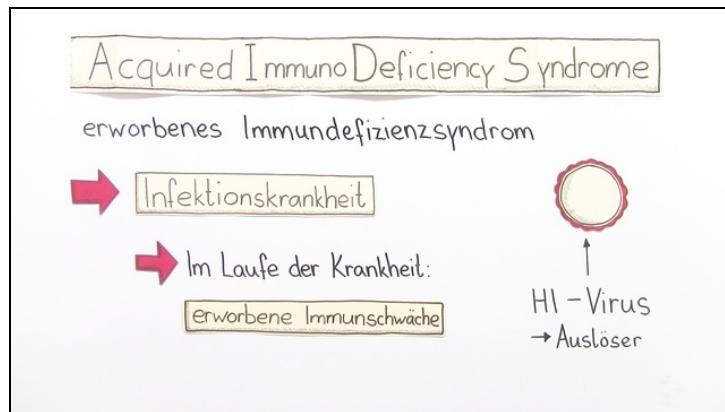 Acquired ImmunoDeficiency Syndrome
erworbenes Immundefizienzsyndrom
Infektionskrankheit
Im Laufe der Krankheit:
erworbene Immunschwäche
HI-Virus
→ Auslöser